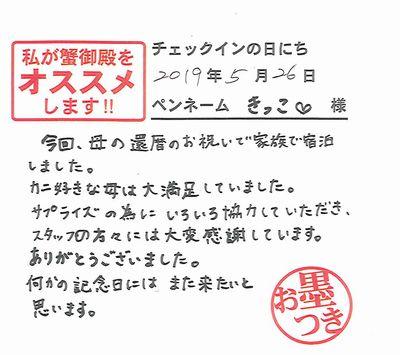 私が蟹御殿を
オススメ
します!!
チェックインの日にち
2019年5月26日
ペンネーム きっこ♡ 様
今回、母の還暦のお祝いで家族で宿泊
しました。
カニ好きな母は大満足していました。
サプライズの為にいろいろ協力していただき、
スタッフの方々には大変感謝しています。
ありがとうございました。
何かの記念日には また来たいと
思います。
お墨つき